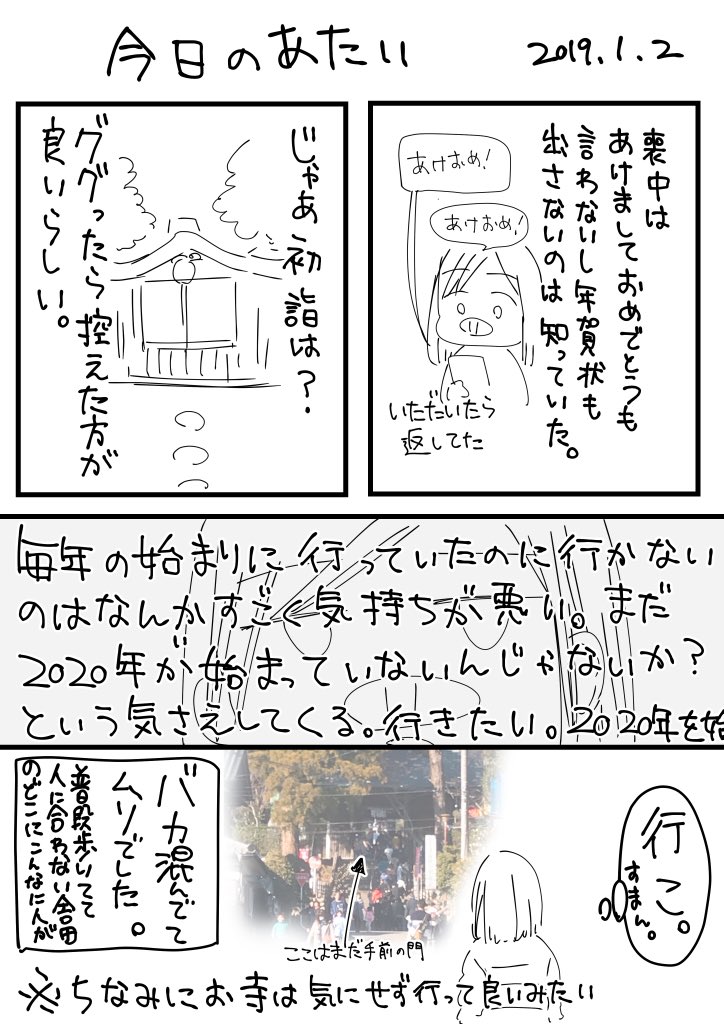 今日のあたい
2019.1.2
喪中は
あけましておめでとうも
言わないし年賀状も
出さないのは知っていた。
あけおめ!
あけおめ!
いただいたら
返してた
じゃあ初詣は?
ググったら控えた方が
良いらしい。
毎年の始まりに行っていたのに行かない
のはなんかすごく気持ちが悪い。まだ
2020年が始まっていないんじゃないか?
という気さえしてくる。行きたい。2020年を始
行こ。
すまん。
ここはまだ手前の門
バカ混んでて
ムリでした。
普段歩いてて
人に合わない田舎
のどこにこんなに人が
※ちなみにお寺は気にせず行って良いみたい